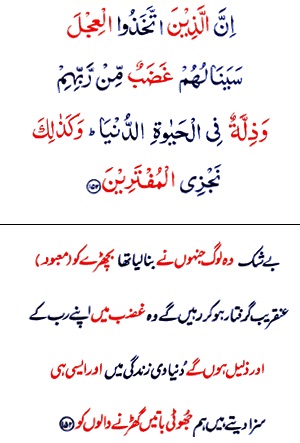 اِنَّ الَّذِيْنَ اتَّخَذُوا الْعِجْلَ
سَيَنَالُهُمْ غَضَبٌ مِّنْ رَّبِّهِمْ
وَذِلَّةٌ فِى الْحَيٰوةِ الدُّنْيَا ؕ وَكَذٰلِكَ
نَجْزِى الْمُفْتَرِيْنَ ﴿۱۵۲﴾
بے شک وہ لوگ جنہوں نے بنا لیا تھا بچھڑے کو (معبود)
عنقریب گرفتار ہو کر رہیں گے وہ غضب میں اپنے رب کے
اور ذلیل ہوں گے دُنیاوی زندگی میں اور ایسی ہی
سزا دیتے ہیں ہم جھُوٹی باتیں گھڑنے والوں کو ﴿۱۵۲﴾